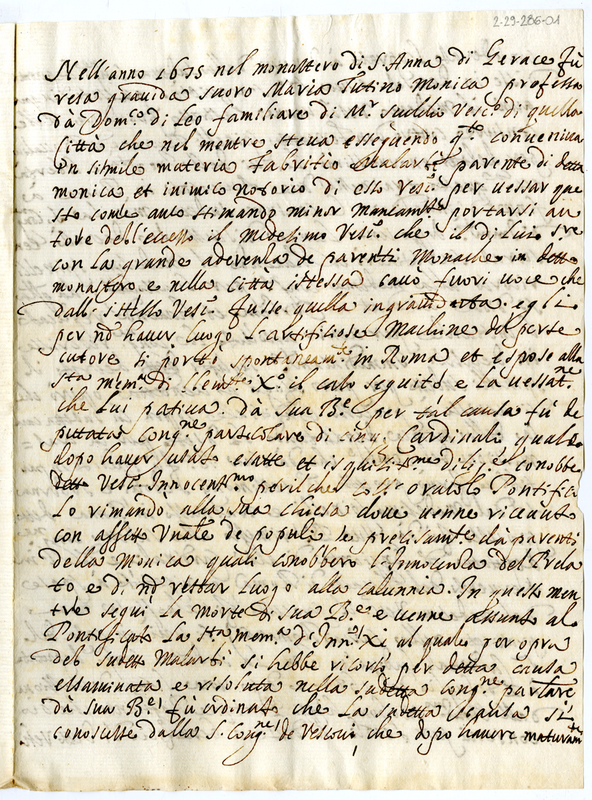 2-29-286-01
Nell'anno 1675 nel monastero di S. Anna di Gerace fù
resa gravida suoro Maria Tutino Monica professa
dà Dom.co di Leo familiare di M.r Vesc.o di quella
Città che nel mentre steva essequendo q.to conveniva
in simile materia Fabritio Malarbì parente di detta
monica et inimico notorio di esso Vesc.o per vessar que
sto come auto stimando minor mancam.to portarsi au
tore dell'eccesso il medesimo Vesc.o che il di Luiо
con la grande aderenza de parenti Monache in detto
monastero e nella città istessa cavò fuori voce che
dall'istesso Vesc.o fusse quella ingravidata egli
per nō haver luogo l'artificiose Machine del perse
cutore si portò spontaneam.te in Roma et espose alla
S.ta mem.a di Clem.te X.o il caso seguito e la vessat.ne
che lui pativa dà Sua B.e per tal causa fù de
putata Cong.ne particolare di cinq. Cardinali quale
dopo haver fatto esatte et isquisitis.me dilig.e conobbe
Vesc.o Innocent.mo perilche coll'oracolo Pontificio
lo rimandò alla sua chiesa dove venne ricevuto
con affetto Un.ale de populi e precisam.te dà parenti
della Monica quali conobbero l'Innocenza del Prela
to e di nō restar luogo alla calunnia. In questo men
tre seguì la morte di sua B.e e venne assunto al
Pontificato la S.ta mem.a d'Inn.o XI al quale per opra
del sudetto Malarbì si hebbe ricorso per detta causa
essaminata e risoluta nella sudetta Cong.ne part.lare
dà sua B.e fù ordinato che la sudetta causa si
conoscesse dalla S. Cong.ne de Vescovi che dopo havere maturam.te